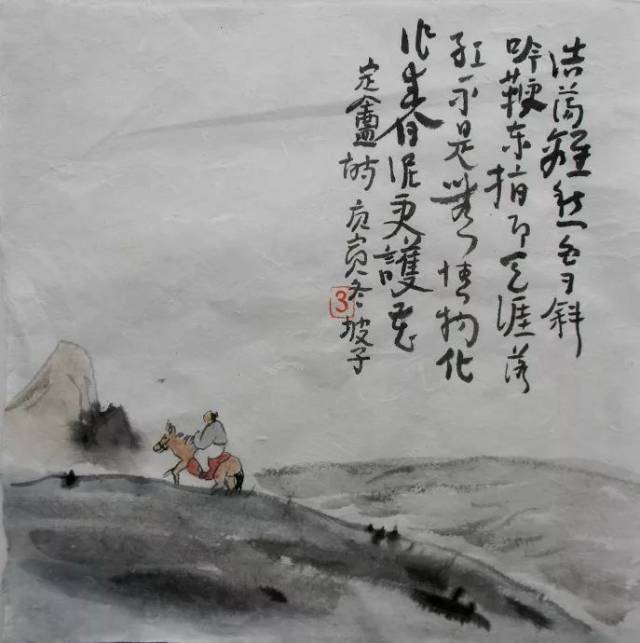 浩荡離愁白日斜
吟鞭东指即天涯落
红不是無情物化
作春泥更護花
定盦诗 庚寅冬坡子